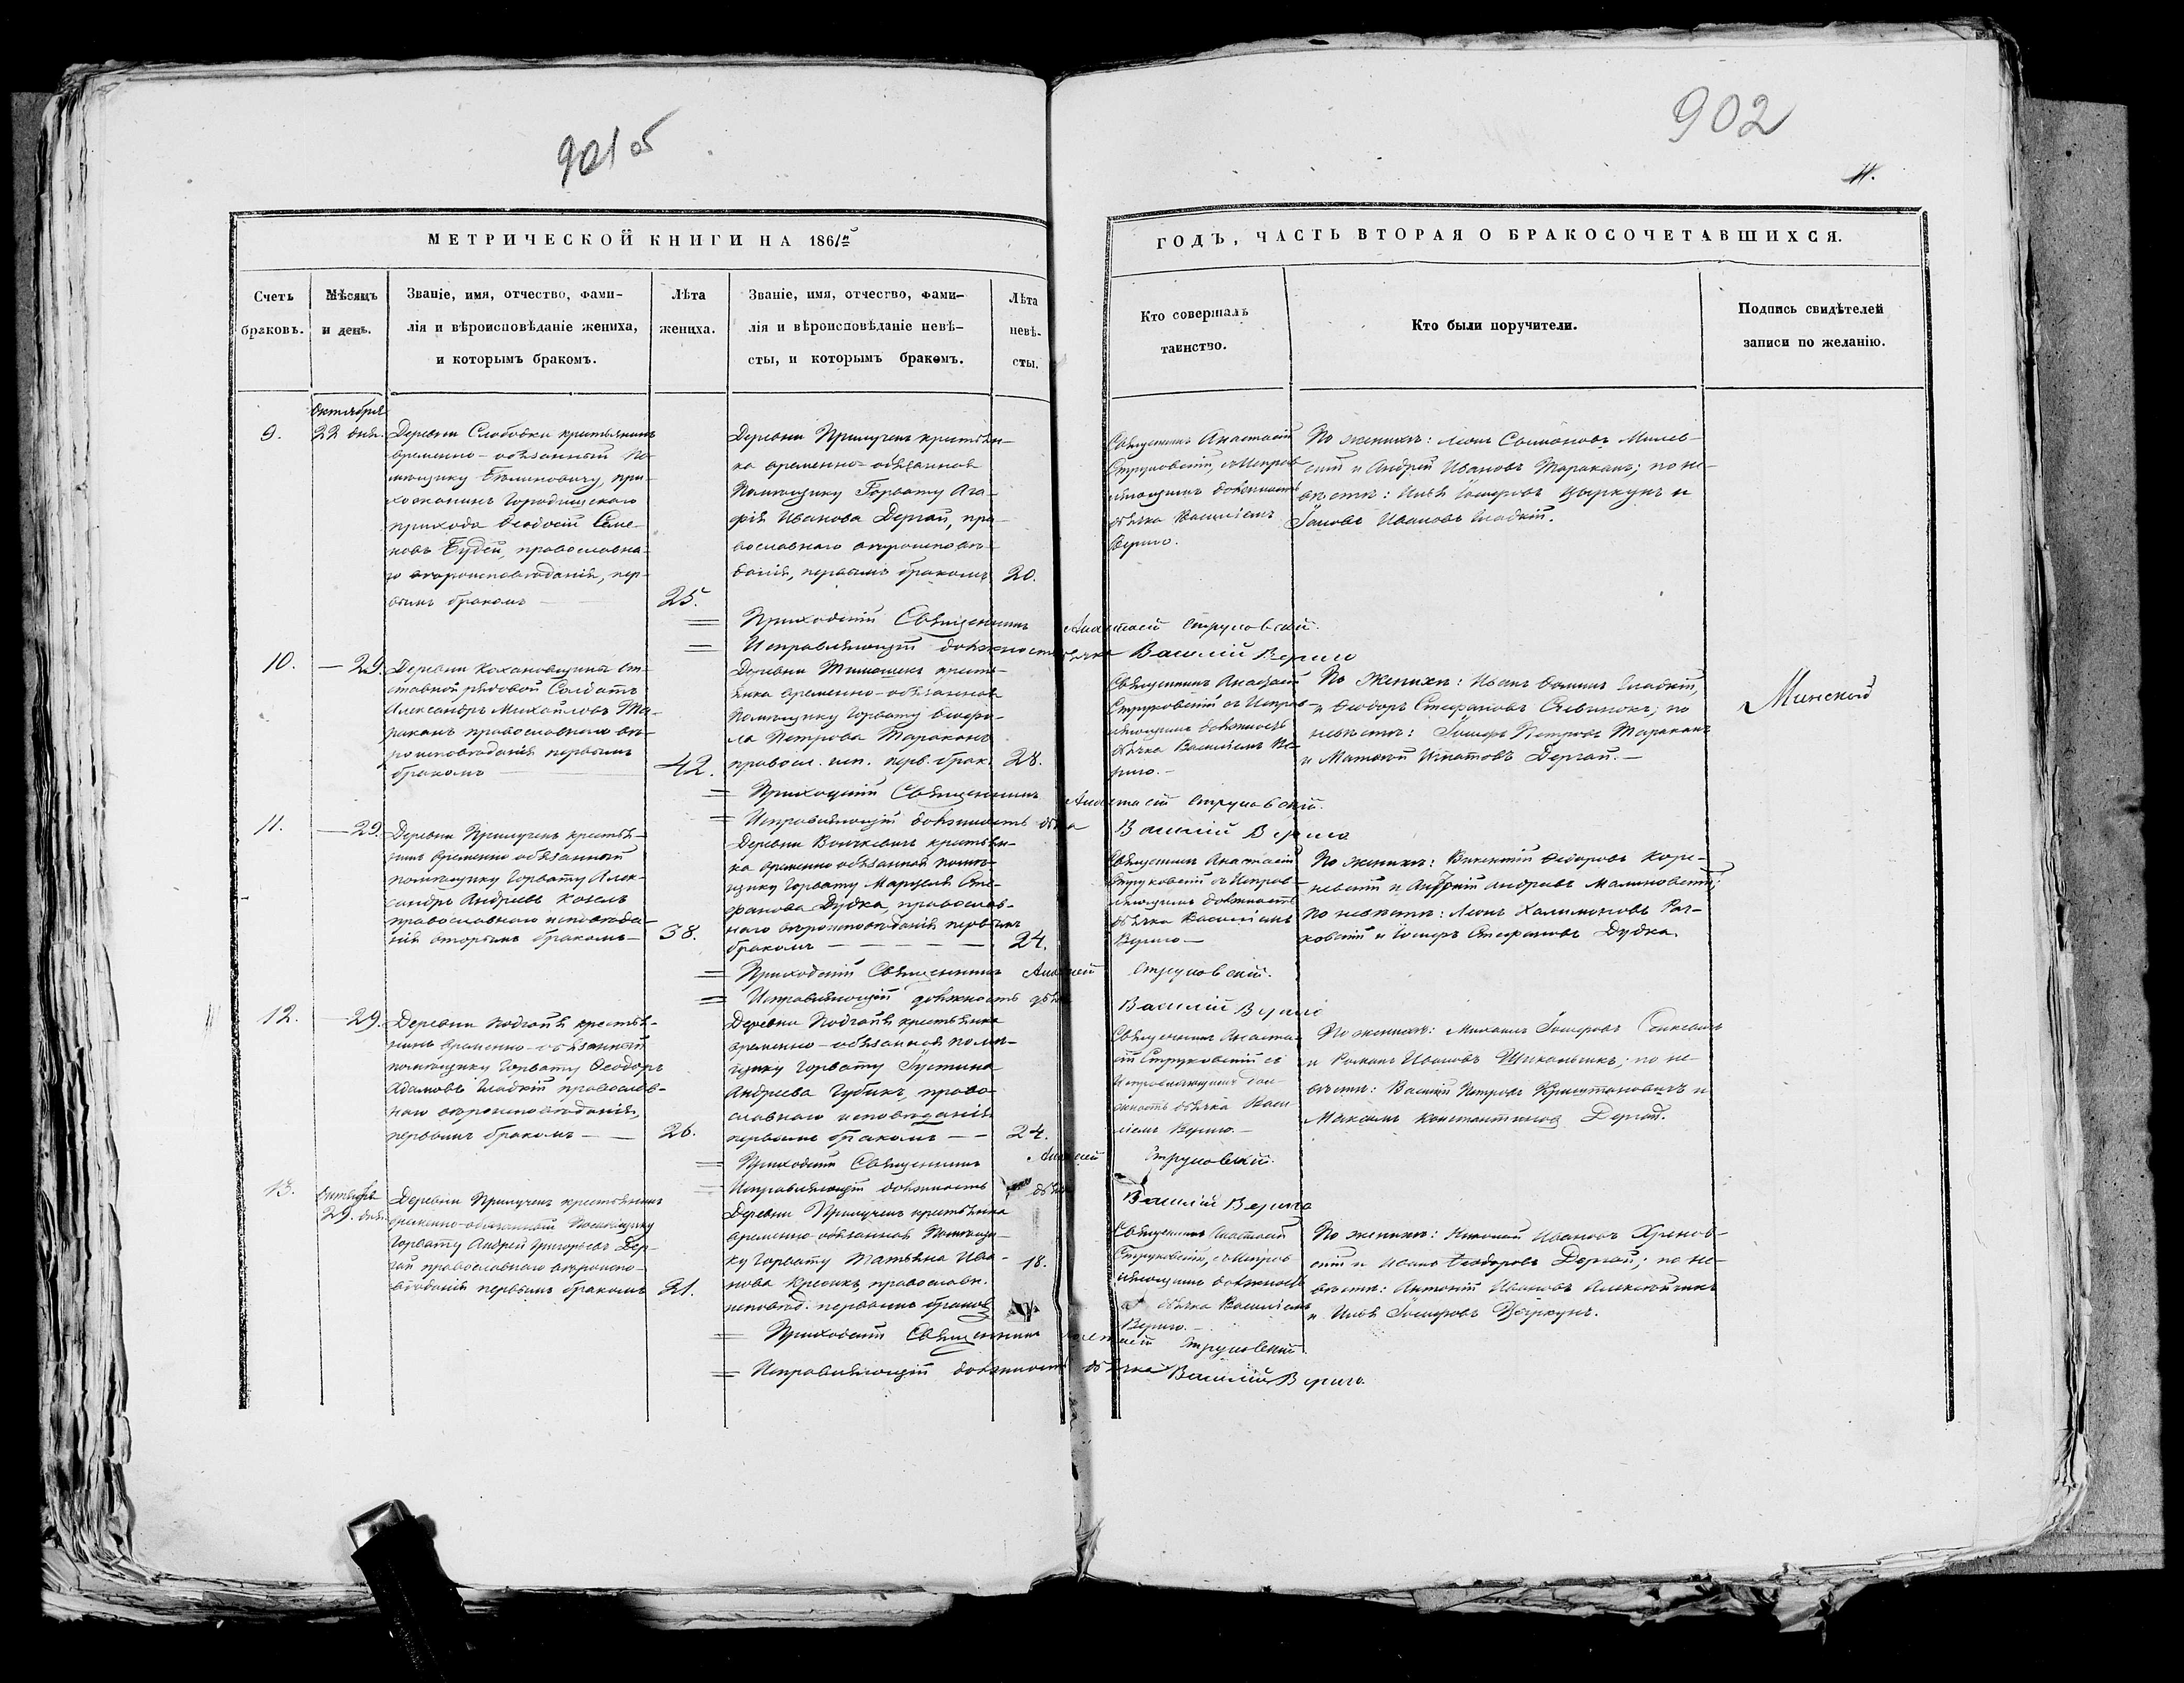 901 об
902
11.
МЕТРИЧЕСКОЙ КНИГИ НА 1861й
ГОДЪ, ЧАСТЬ ВТОРАЯ О БРАКОСОЧЕТАВШИХСЯ.
Счетъ браковъ.
Мѣсяцъ и день.
Званіе, имя, отчество, фами-
лія и вѣроисповѣданіе жениха,
и которымъ бракомъ.
Лѣта жениха.
Званіе, имя, отчество, фами-
лія и вѣроисповѣданіе невѣ-
сты, и которымъ бракомъ.
Лѣта невѣ-
сты.
Кто совершалъ
таинство.
Кто были поручители.
Подпись свидѣтелей
записи по желанію.
9.
Октября
22 дня.
Деревни Слободки крестьянинъ
временно-обязанный По-
мѣщику, при-
хожанинъ Городищскаго
прихода Ѳеодосій Семе-
новъ Будей, православна-
го вѣроисповѣданія, пер-
вымъ бракомъ
25.
Деревни Прилучекъ крестьян-
ка временно-обязанная
Помѣщику Горвату Ага-
фія Иванова Дергай, пра-
вославнаго вѣроисповѣ-
данія, первымъ бракомъ
20.
Священникъ Анастасій
Струковскій, съ Исправ-
ляющимъ должность
дьячка Василіемъ
Вериго.
По женихѣ: Леонъ Милев-
скій и Андрей Ивановъ Тараканъ; по не-
вѣстѣ: Илья Іосифовъ Цыркунъ и
Іаковъ Ивановъ Гладкій.
= Приходскій Священникъ Анастасій Струковскій.
= Исправляющій должность дьячка Василій Вериго
10.
— 29.
Деревни Кохановщины От-
ставной рядовой Солдатъ
Александръ Михайловъ Та-
раканъ православнаго вѣ-
роисповѣданія первымъ
бракомъ
42.
Деревни крестья-
янка временно-обязанная
Помѣщику Горвату Ѳеофи-
ла Петрова Тараканъ
правосл. исп. перв. брак.
28.
Священникъ Анастасій
Струковскій съ Исправ-
ляющимъ должность
дьячка Василіемъ Ве-
риго.—
По женихѣ: Иванъ Ѳоминъ Гладкій,
и Ѳеодоръ Стефановъ; по
невѣстѣ: Іосифъ Петровъ Тараканъ
и Матвѣй Игнатовъ Дергай.—
Минской
= Приходскій Священникъ Анастасій Струковскій.
= Исправляющій должность дьячка Василій Вериго
11.
— 29.
Деревни Прилучекъ крестья-
нинъ временно обязанный
помѣщику Горвату Алек-
сандръ Андреевъ Козелъ
православнаго исповѣда-
нія вторымъ бракомъ—
38.
Деревни крестьян-
ка временно обязанная помѣ-
щику Горвату Марцеля Сте-
фанова Дудка, православ-
наго вѣроисповѣданія первымъ
бракомъ — — — —
24.
Священникъ Анастасій
Струковскій съ Исправ-
ляющимъ должность
дьячка Василіемъ
Вериго—
По женихѣ: Викентій Ѳеодоровъ Коре-
невскій и Андрей Андреевъ Малиновскій;
по невѣстѣ: Леонъ Халимоновъ Рач-
ковскій и Іосифъ Стефановъ Дудка.
= Приходскій Священникъ Анастасій Струковскій.
= Исправляющій должность дьячка Василій Вериго
12.
— 29.
Деревни Подгай крестья-
нинъ временно-обязанный
помѣщику Горвату Ѳеодоръ
Адамовъ Гладкій православ-
наго вѣроисповѣданія,
первымъ бракомъ — —
26.
Деревни Подгай крестьянка
временно-обязанная помѣ-
щику Горвату Іустина
Андреева Губикъ, право-
славнаго исповѣданія
первымъ бракомъ — —
24.
Священникъ Анаста-
сій Струковскій съ
Исправляющимъ дол-
жность дьячка Васи-
ліемъ Вериго.—
По женихѣ: Михаилъ Іосифовъ
и Романъ Ивановъ; по не-
вѣстѣ: Василій Петровъ и
Максимъ Константиновъ Дергай.
= Приходскій Священникъ Анастасій Струковскій.
= Исправляющій должность дьячка Василій Вериго
13.
Октября
29. дня.
Деревни Прилучекъ крестьянинъ
временно-обязанный Помѣщику
Горвату Андрей Григорьевъ Дер-
гай православнаго вѣроиспо-
вѣданія первымъ бракомъ
21.
Деревни Прилучекъ крестьянка
временно обязанная Помѣщи-
ку Горвату Татьяна Ива-
нова, православн.
исповѣд. первымъ бракомъ
18.
Священникъ Анастасій
Струковскій, съ Исправ-
ляющимъ должность
дьячка Василіемъ
Вериго.—
По женихѣ: Николай Ивановъ Хренов-
скій и Иванъ Ѳеодоровъ Дергай; по не-
вѣстѣ: Антоній Ивановъ
и Илья Іосифовъ Цыркунъ.
= Приходскій Священникъ Анастасій Струковскій.
= Исправляющій должность дьячка Василій Вериго.